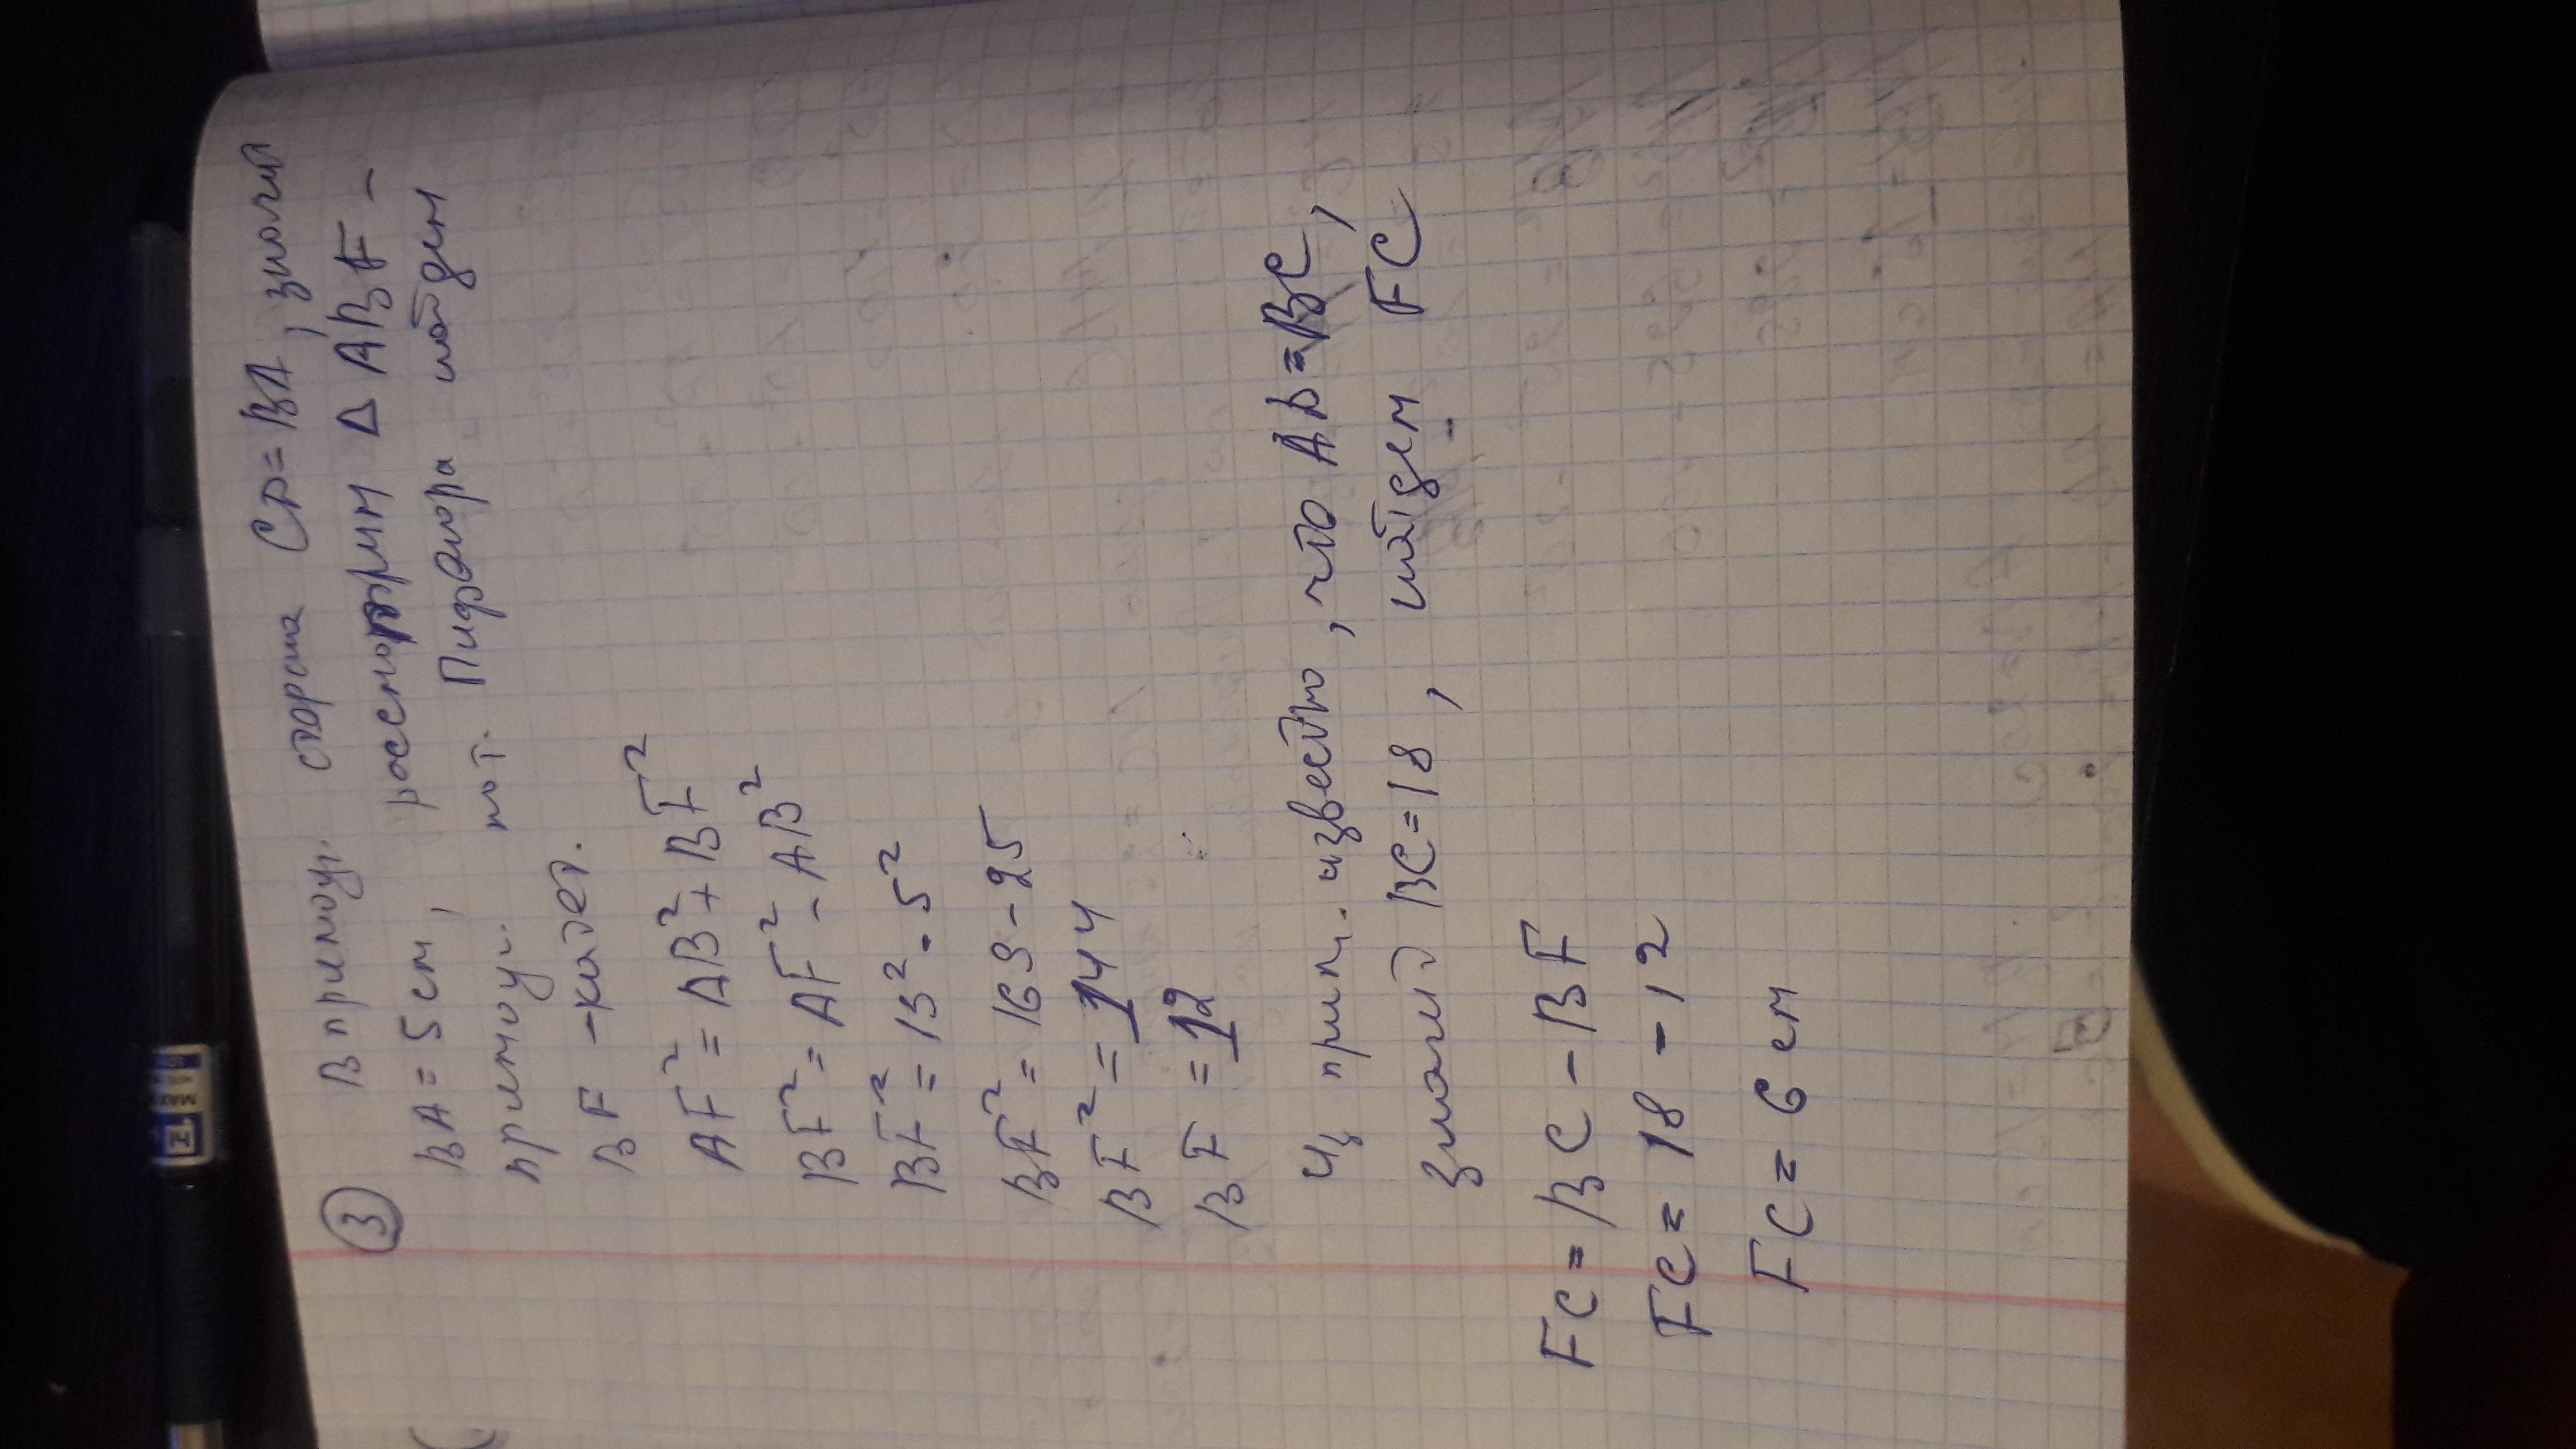 ③ В прямоуг. сторона CD = BA, значит
BA = 5 см, рассмотрим Δ ABF -
прямоуг. по т. Пифагора найдем
BF - катет.
AF² = AB² + BF²
BF² = AF² - AB²
BF² = 13² - 5²
BF² = 169 - 25
BF² = 144
BF = 12
Из прям. известно, что AD = BC,
значит BC = 18, найдем FC
FC = BC - BF
FC = 18 - 12
FC = 6 см